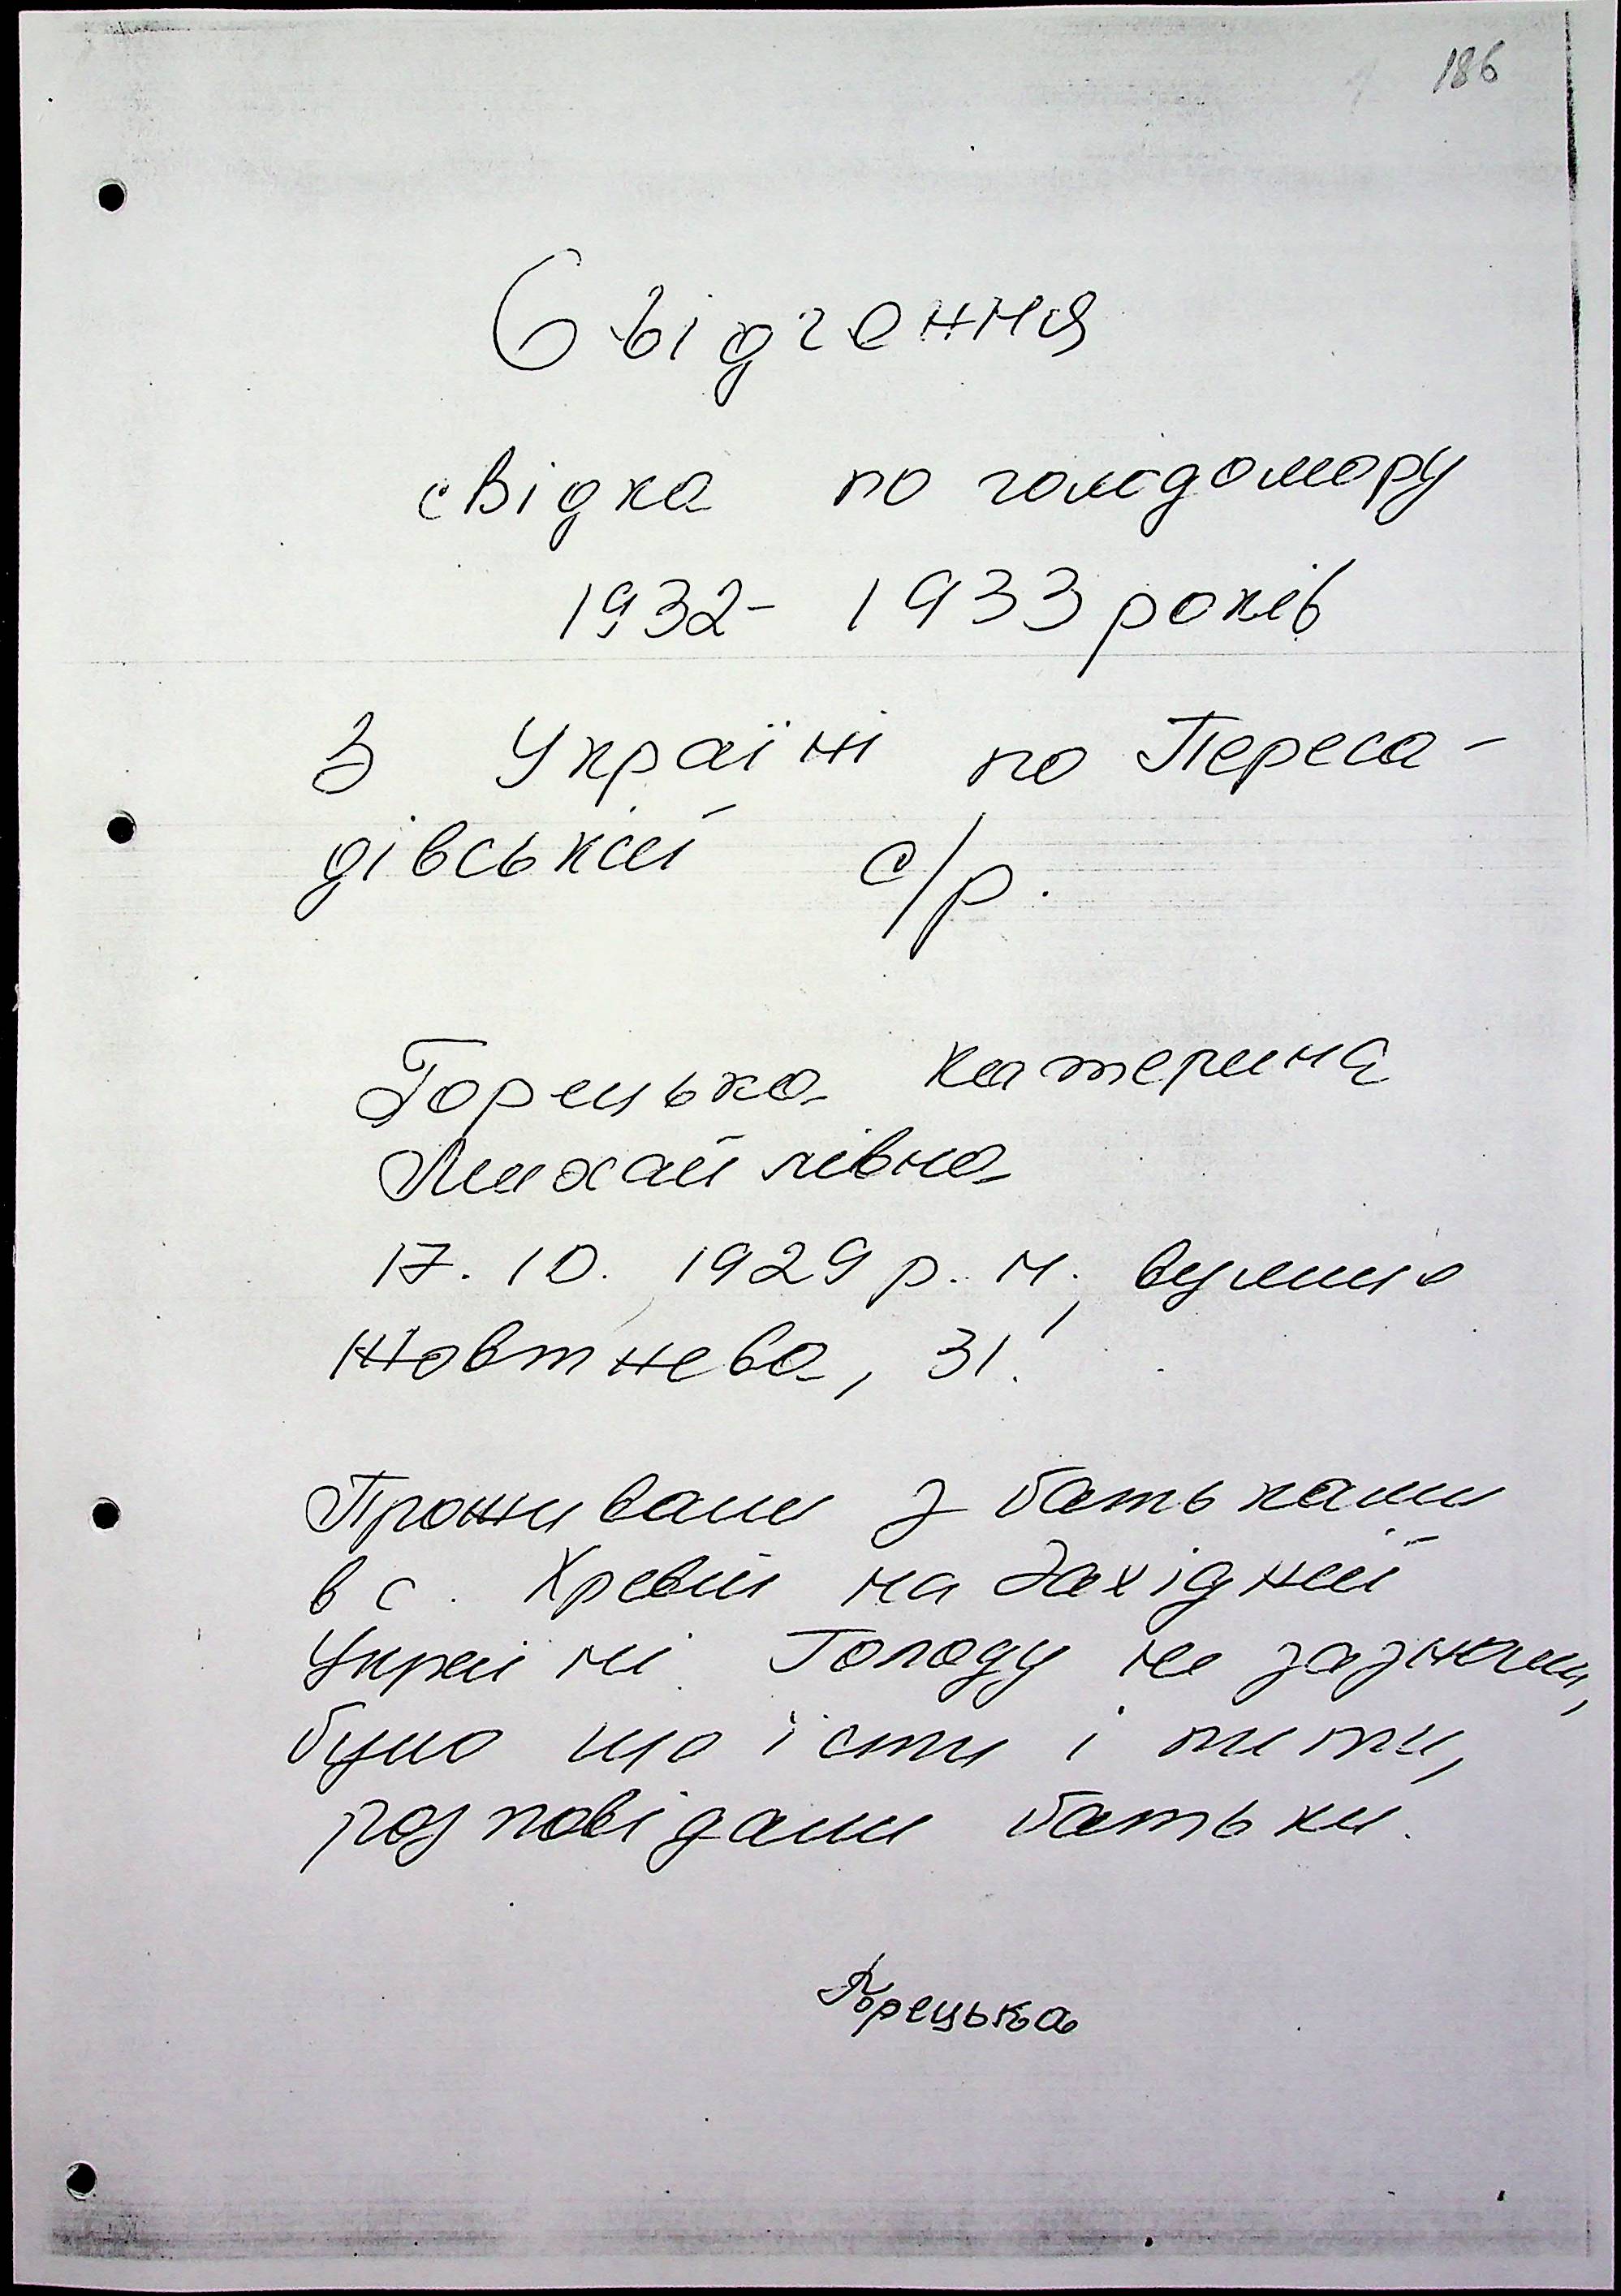 186
Свідчення
свідка по голодомору
1932- 1933 років
В Україні по Переса-
дівській с/р.
Горецька Катерина
Михайлівна
17.10.1929 р.н., вулиця
Жовтнева, 31.
Проживали з батьками
в с. на Західній
Україні. Голоду не зазнали,
було що їсти і пити,
розповідали батьки.
Горецька